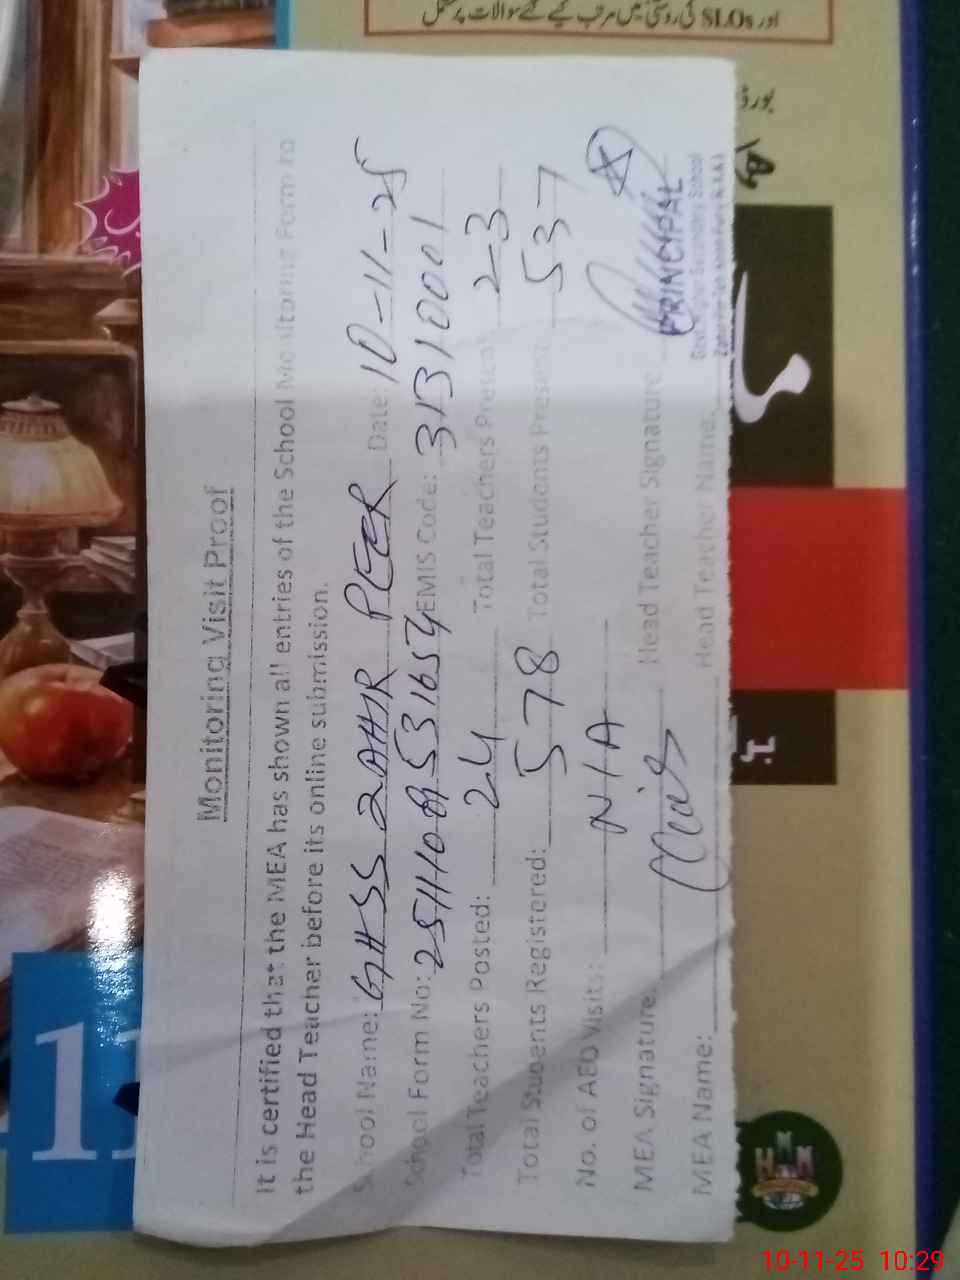 اور SLOs کی روشنی میں مرتب کیے گئے سوالات پر مشتمل
بورڈ
Monitoring Visit Proof
It is certified that the MEA has shown all entries of the School Monitoring Form to
the Head Teacher before its online submission.
School Name: GHSS ZAHIR PEER Date: 10-11-25
School Form No: EMIS Code: 31310001
Total Teachers Posted: 24 Total Teachers Present 23
Total Students Registered: 578 Total Students Present 537
No. of AEO Visits: N/A
MEA Signature: Head Teacher Signature
MEA Name: Head Teacher Name:
PRINCIPAL
Govt. Higher Secondary School
11
10-11-25 10:29